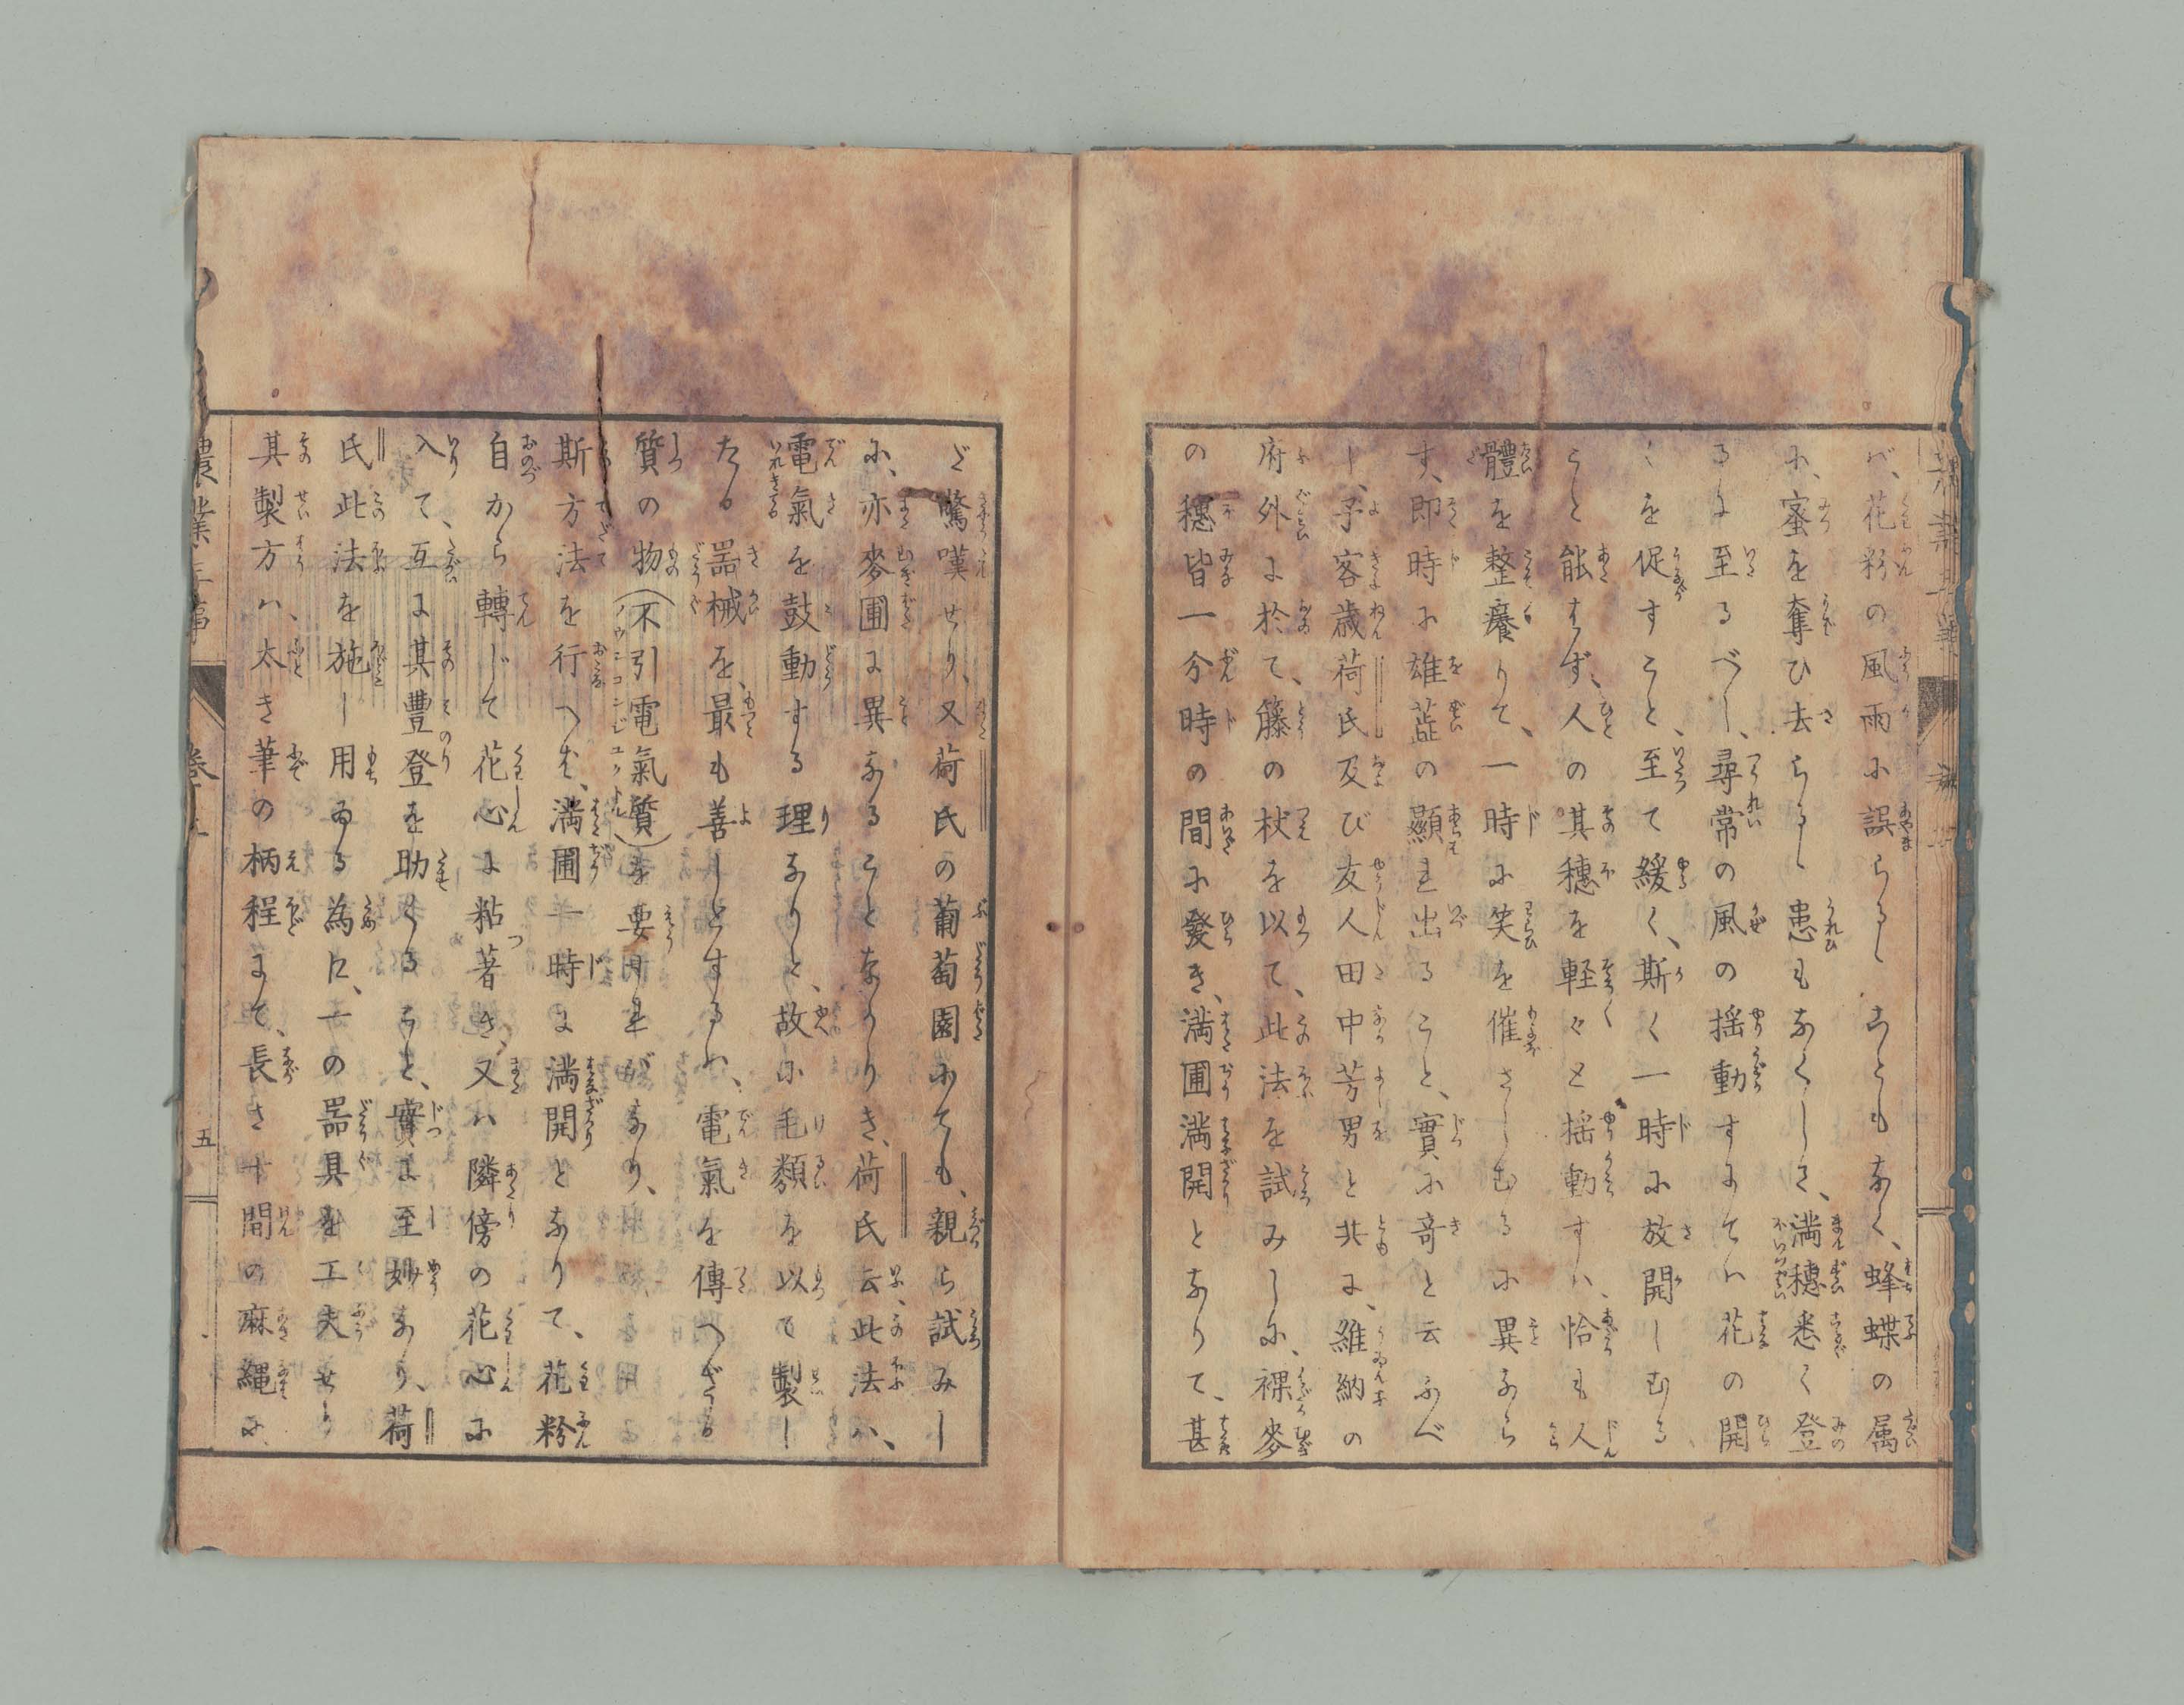 バ、花粉の風雨に誤らるゝことも なく、蜂蝶の属
に、蜜を奪ひ去らるゝ患もなくして、満穂悉く登
るに至るべし、尋常の風の揺動すにてハ花の開
くを促すこと、至て緩く、斯く一時に放開しむる
こと能はず、人の其穂を軽々と揺動すハ、恰も人
體を整癢りて、一時に笑を催さしむるに異なら
ず、即時に雄蕋の顯き出ること、實に竒と云ふべ
し、予客歳荷氏及び友人田中芳男と共に、維納の
府外に於て、籐の杖を以て、此法を試みしに、裸麥
の穂皆一分時の間に發き、満圃満開となりて、甚
ど驚嘆せり、又荷氏の葡萄園にても、親ら試みし
に、亦麥圃に異なることなかりき、荷氏云此法ハ、
電氣を鼓動する理なりと、故に毛類を以て製し
たる噐械を、最も善しとするハ、電氣を傳へざる
質の物(不引電氣質)を要すればなり、
斯方法を行へば、満圃一時に満開となりて、花粉
自から轉じて花心に粘著き、又ハ隣傍の花心に
入て、互に其豊登を助くること、實に至妙なり、荷
氏此法を施し用ゐる為に、一の噐具を工夫せり
其製方ハ、太き筆の柄程にて、長さ十間の麻縄に
農業三事
巻上
五